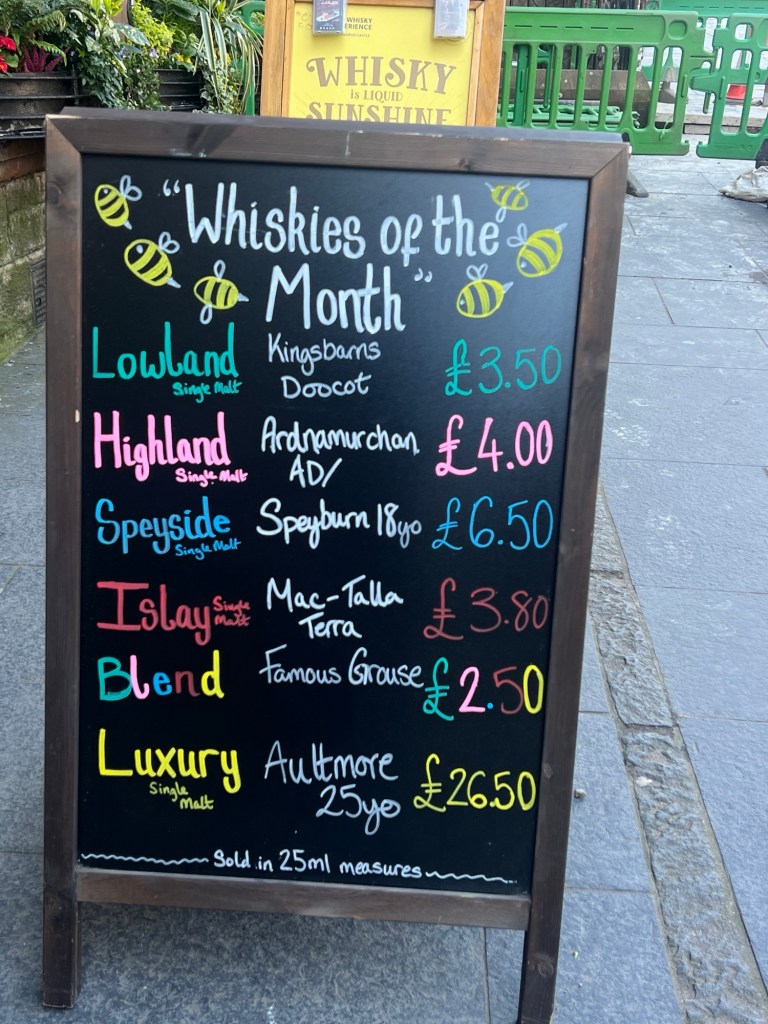 WHISKY
WHISKY
is LIQUID
SUNSHINE
"Whiskies of the
Month"
Lowland
Single Malt
Kingsbarns
Doocot
£3.50
Highland
Single Malt
Ardnamurchan
AD/
£4.00
Speyside
Single Malt
Speyburn 18yo
£6.50
Islay
Single
Malt
Mac-Talla
Terra
£3.80
Blend
Famous Grouse
£2.50
Luxury
Single
Malt
Aultmore
25yo
£26.50
Sold in 25ml measures